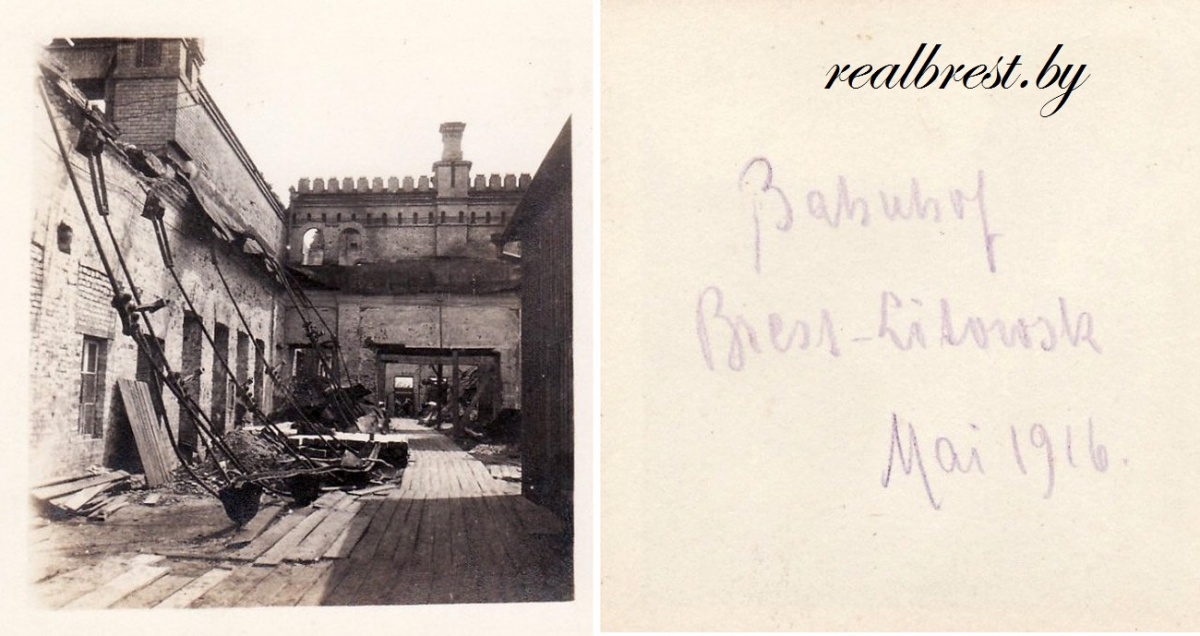 realbrest.by
Bahnhof
Brest-Litowsk
Mai 1916.